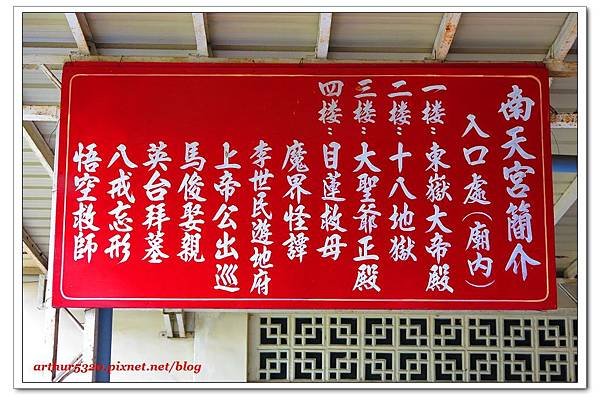 南天宮簡介
入口處(廟內)
一樓:東嶽大帝殿
二樓:十八地獄
三樓:大聖爺正殿
四樓:目蓮救母
魔界怪譚
李世民遊地府
上帝公出巡
馬俊娶親
英台拜墓
八戒忘形
悟空救師
arthur5320.pixnet.net/blog